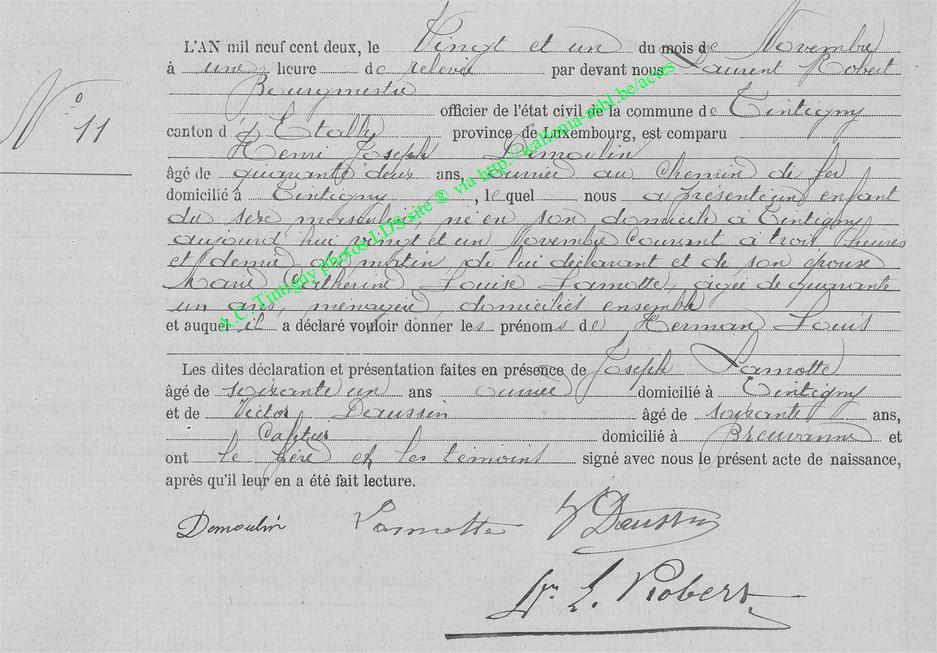 L'AN mil neuf cent deux, le Vingt et un du mois de Novembre
à une heure de relevée par devant nous Laurent Robert
Bourgmestre
officier de l'état civil de la commune de Tintigny
N° 11
canton d' Etalle province de Luxembourg, est comparu
Henri Joseph Demoulin
âgé de quarante deux ans, ouvrier au chemin de fer
domicilié à Tintigny, lequel nous a présenté un enfant
du sexe masculin, né en son domicile à Tintigny
aujourd'hui vingt et un Novembre courant à trois heures
et demie du matin, de lui déclarant et de son épouse
Marie Catherine Louise Lamotte, agée de quarante
un ans, ménagère, domiciliés ensemble
et auquel il a déclaré vouloir donner les prénoms de Herman Louis
Les dites déclaration et présentation faites en présence de Joseph Lamotte
âgé de soixante un ans ouvrier domicilié à Tintigny
et de Victor Daussin âgé de soixante ans,
Cafetier domicilié à Breuvanne et
ont le père et les témoins signé avec nous le présent acte de naissance,
après qu'il leur en a été fait lecture.
Demoulin Lamotte V Daussin
L. Robert
A.C. Tintigny photos LD's site ® via http://wallonia-asbl.be/actes